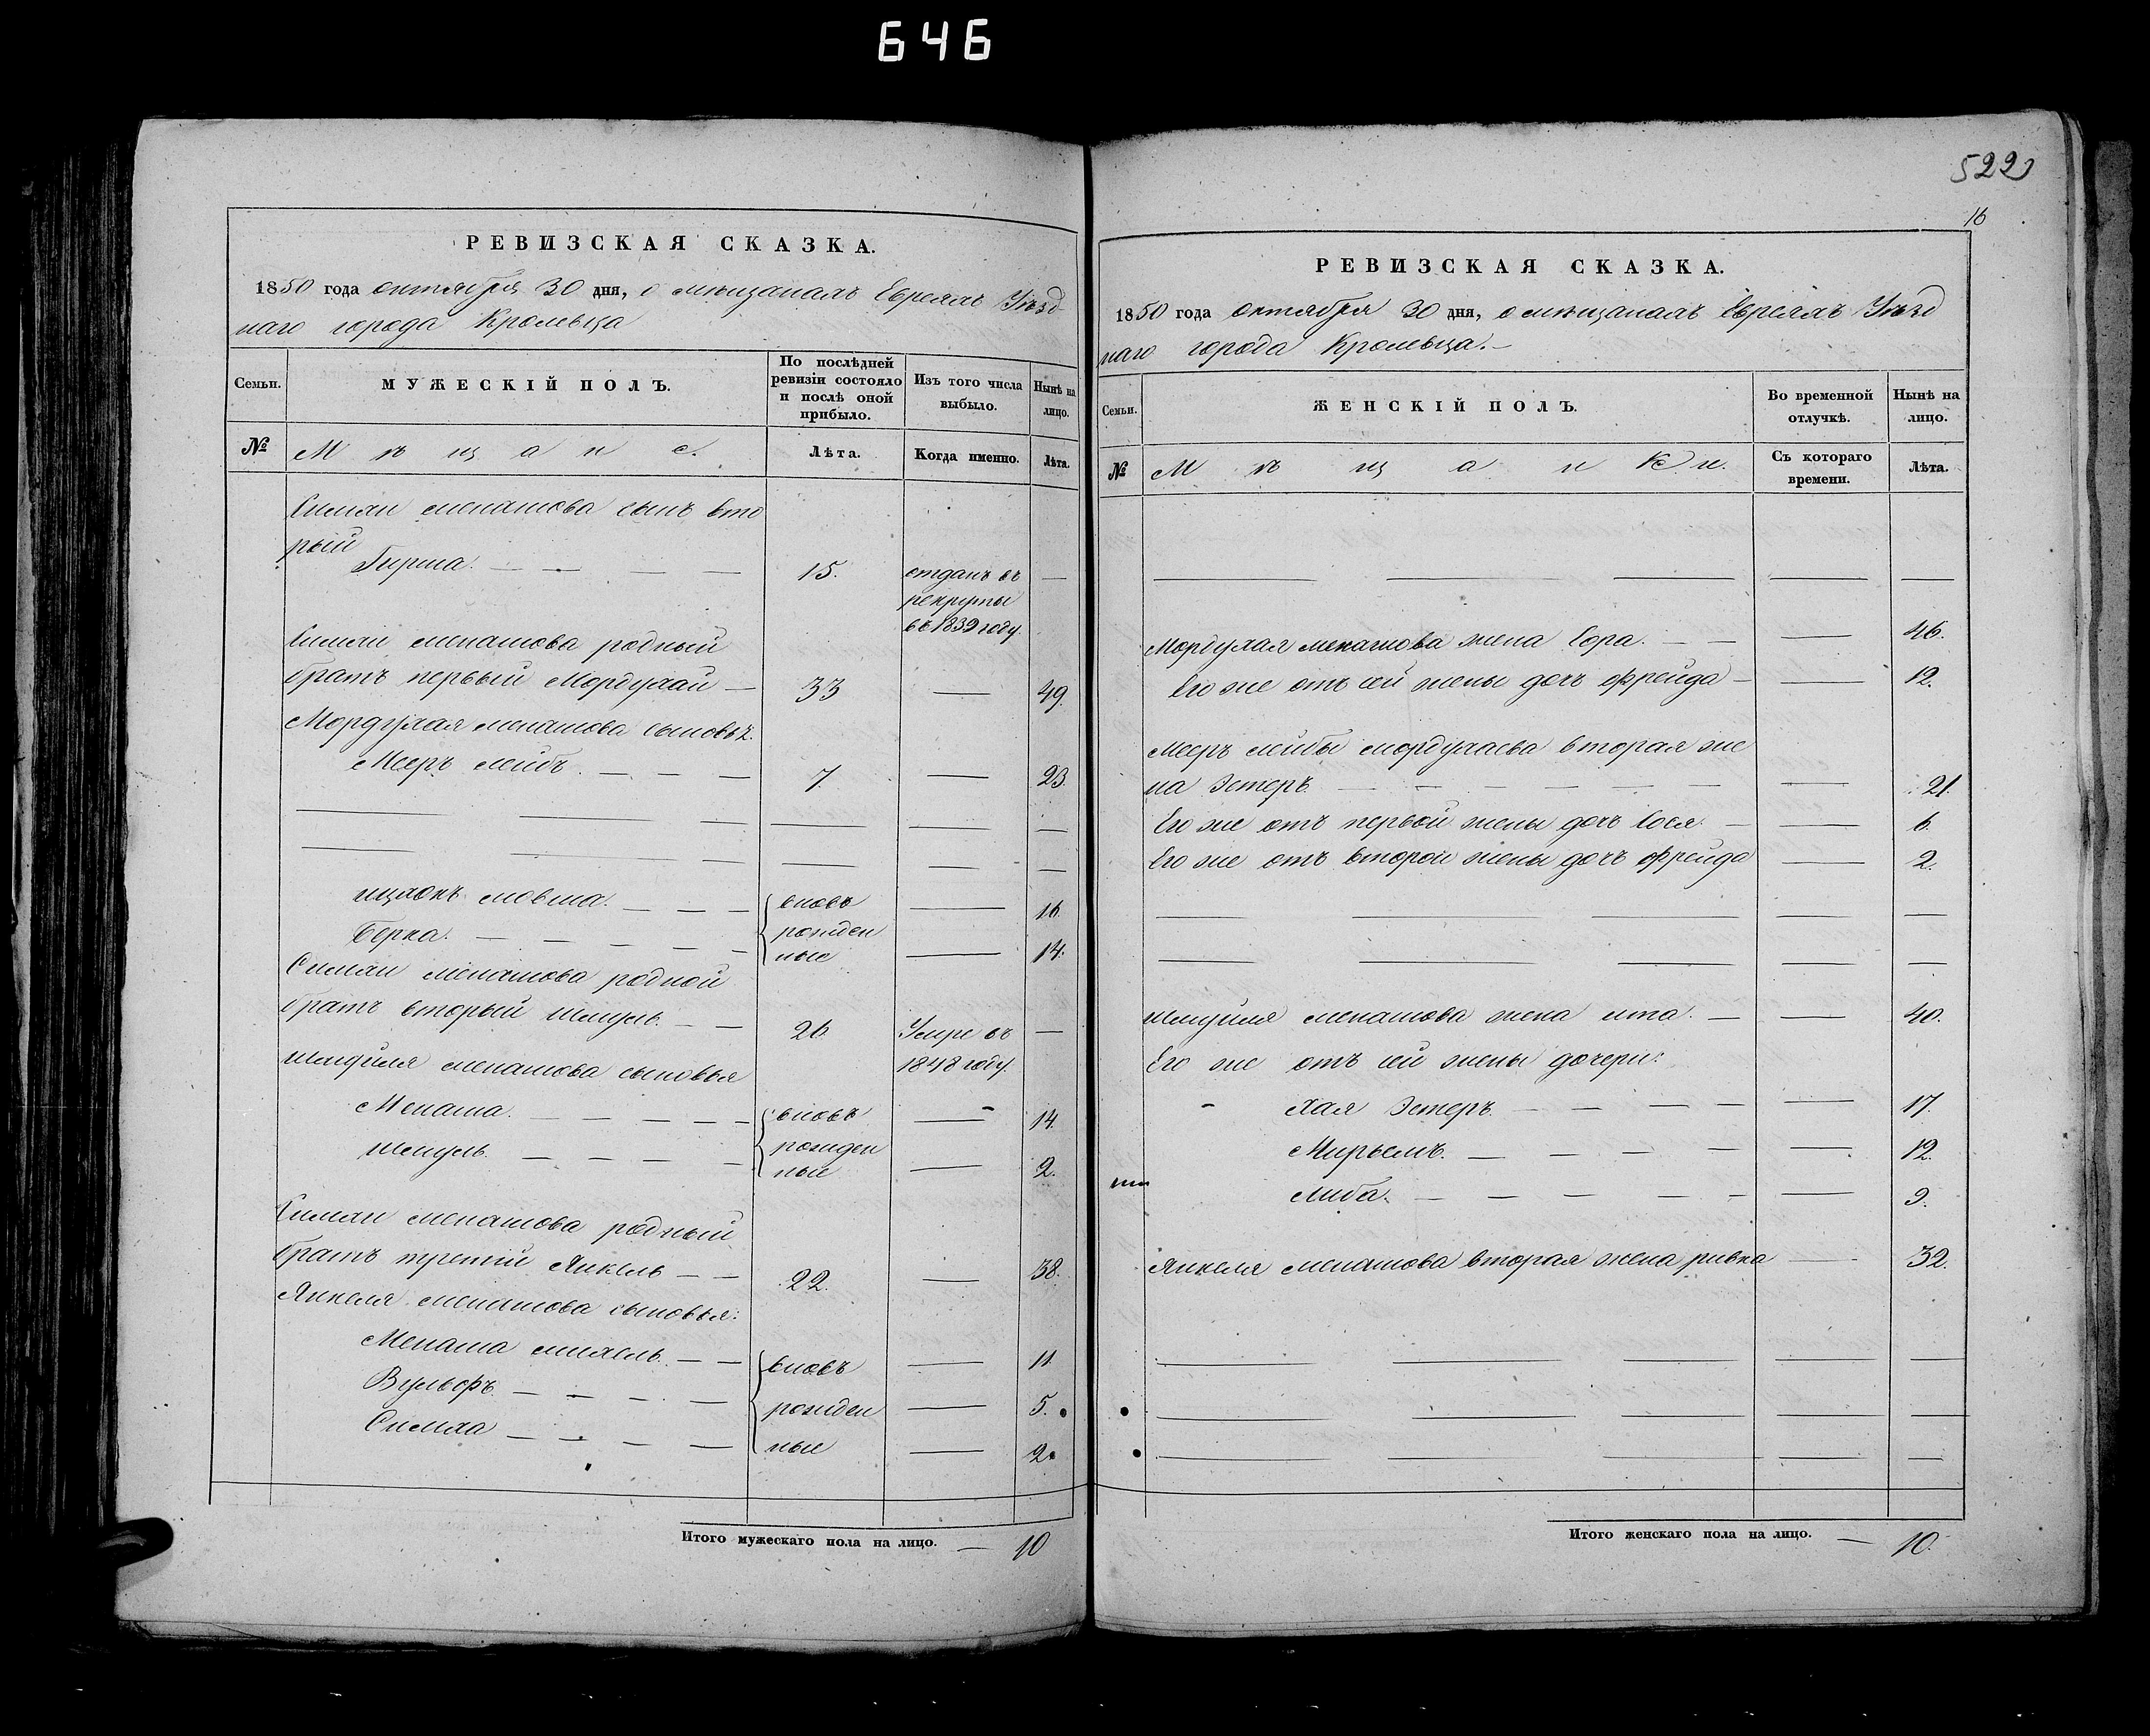 646
РЕВИЗСКАЯ СКАЗКА.
1850 года октября 30 дня, о мѣщанахъ Евреяхъ Уѣзд
наго города Кролевца
Семьи.
МУЖЕСКІЙ ПОЛЪ.
По послѣдней ревизіи состояло и послѣ оной прибыло.
Изъ того числа выбыло.
Нынѣ на лицо.
№
Мѣщане.
Лѣта.
Когда именно.
Лѣта.
менашова сынъ вто
рый
Гирша. 15. отданъ въ
рекруты
въ 1839 году.
менашова родный
братъ первый Мордухай 33 49.
Мордухая менашова сыновья.
Мееръ лейбъ. 7. 23.
ицхокъ мовша. вновь 16.
Берка. рожден 14.
ные
менашова родной
братъ вторый шмуль. 26. Умре въ
1848 году.
шмуйля менашова сыновья
Менаша. вновь 14.
рожден
шмуль. ные 2.
менашова родный
братъ третій Янкель 22. 38.
Янкеля менашова сыновья:
Менаша вновь 11.
Вульфъ. рожден 5.
Симха ные 2.
Итого мужескаго пола на лицо. 10
522
16
РЕВИЗСКАЯ СКАЗКА.
1850 года октября 30 дня, о мѣщанахъ Евреяхъ Уѣзд
наго города Кролевца.
Семьи.
ЖЕНСКІЙ ПОЛЪ.
Во временной отлучкѣ.
Нынѣ на лицо.
№
Мѣщанки.
Съ котораго времени.
Лѣта.
Мордухая менашова жена Сора. 46.
Его же отъ сей жены дочь фрейда 12.
Мееръ лейбы мордухаева вторая же
на Эстеръ. 21.
Его же отъ первой жены дочь Сося. 6.
Его же отъ второй жены дочь фрейда 2.
шмуйля менашова жена ита. 40.
Его же отъ сей жены дочери:
Хая Эстеръ. 17.
Мирьемъ. 12.
Либа. 9.
Янкеля менашова вторая жена ривка 32.
Итого женскаго пола на лицо. 10.